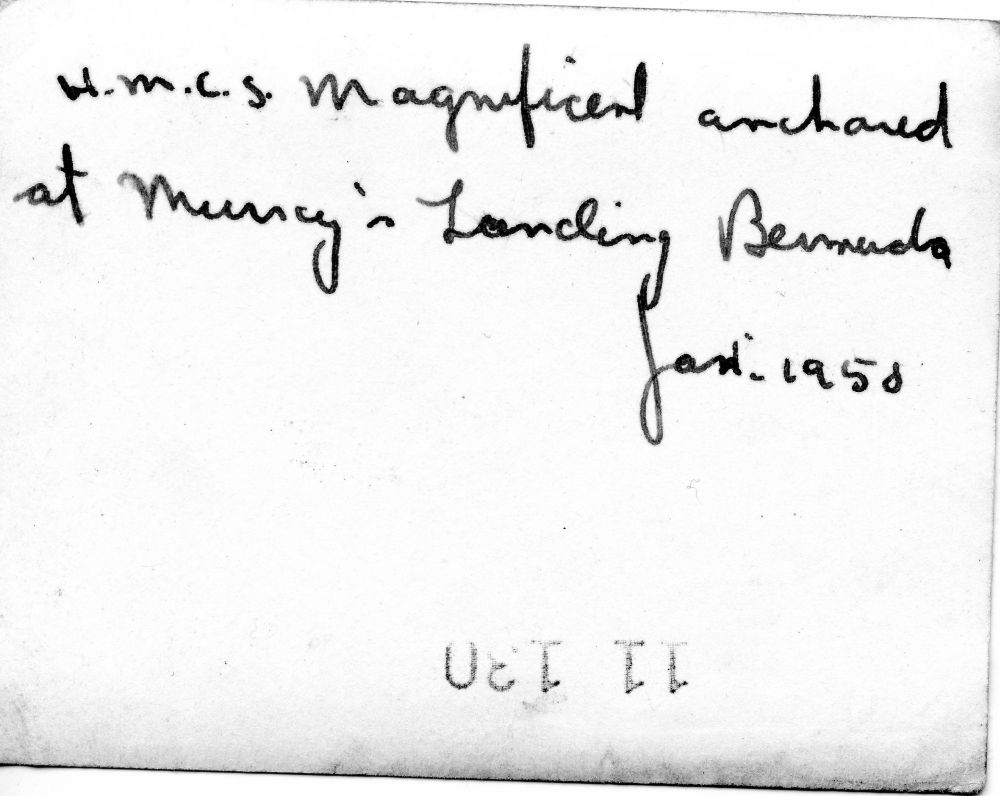 H.M.C.S. Magnificent anchored
at Murray's Landing Bermuda
Jan. 1950
11